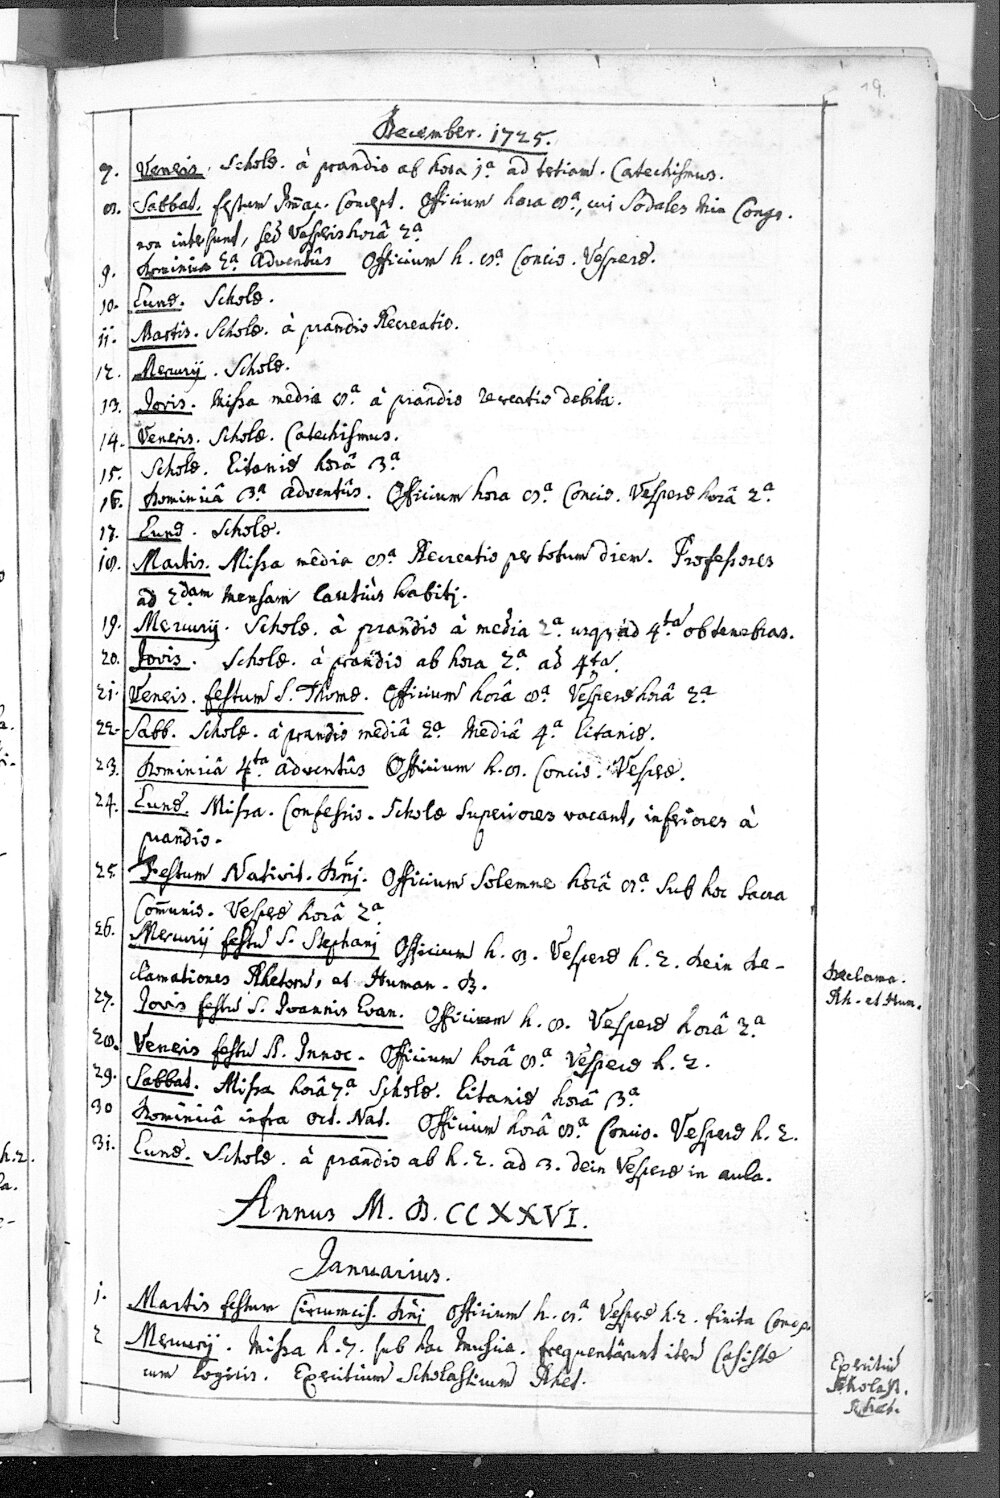 19.
December. 1725.
7. Veneris. Scholæ. à prandio ab hora 1ª ad tertiam. Catechismus.
8. Sabbat. festum Im̄ac. Concept. Officium hora 8ª, cui Sodales Min Congr.
non intersunt, sed Vesperis horâ 2ª
9. Dominica 2ª Adventûs Officium h. 8ª Concio. Vesperæ.
10. Lunæ. Scholæ.
11. Martis. Scholæ. à prandio Recreatio.
12. Mercurij. Scholæ.
13. Jovis. Missa media 8ª à prandio recreatio debita.
14. Veneris. Scholæ. Catechismus.
15. Scholæ. Litaniæ horâ 3ª
16. Dominicâ 3ª Adventûs. Officium hora 8ª Concio. Vesperæ horâ 2ª
17. Lunæ. Scholæ.
18. Martis. Missa mediâ 8ª Recreatio per totum diem. Professores
ad 2dam mensam lautiùs habiti.
19. Mercurij. Scholæ. à prandio à media 2ª usq; ad 4ta ob tenebras.
20. Jovis. Scholæ. à prandio ab hora 2ª ad 4ta.
21. Veneris. festum S. Thomæ. Officium horâ 8ª Vesperæ horâ 2ª
22. Sabb. Scholæ. à prandio mediâ 2ª Mediâ 4ª Litaniæ.
23. Dominicâ 4ta adventûs Officium h. 8. Concio. Vesperæ.
24. Lunæ. Missa. Confessio. Scholæ Superiores vacant, inferiores à
prandio.
25. Festum Nativit. Dn̄j. Officium Solemne horâ 8ª Sub hoc Sacra
Com̄unio. Vesperæ horâ 2ª
26. Mercurij festū S. Stephanj Officium h. 8. Vesperæ h. 2. dein de-
clamationes Rhetorū, et Human. D.
Declama.
Rh. et Hum.
27. Jovis festū S. Joannis Evan. Officium h. 8. Vesperæ horâ 2ª
28. Veneris festū SS. Innoc. Officium horâ 8ª Vesperæ h. 2.
29. Sabbat. Missa horâ 7ª Scholæ. Litaniæ horâ 3ª
30 Dominicâ infra oct. Nat. Officium horâ 8ª Concio. Vesperæ h. 2.
31. Lunæ. Scholæ. à prandio ab h. 2. ad 3. dein Vesperæ in aula.
Annus M. D. CCXXVI.
Januarius.
1. Martis festum Circumcis. Dn̄j Officium h. 8ª Vesperæ h. 2. finita
2 Mercurij. Missa h. 7. sub hac Musica. frequentârunt item Casistæ
cum logicis. Exercitium Scholasticum Rhet.
Exercitiū
Scholast.
Rhet.